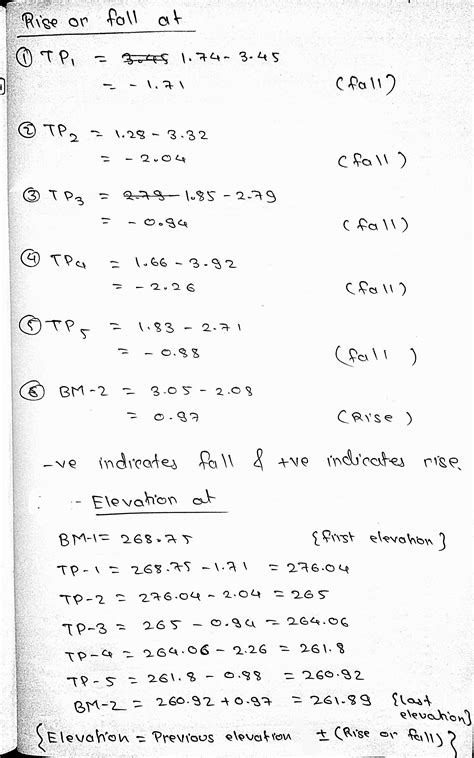 Rise or fall at
① TP₁ = 3.45 1.74 - 3.45
= - 1.71 (fall)
② TP₂ = 1.28 - 3.32
= - 2.04 (fall)
③ TP₃ = 2.79 1.85 - 2.79
= - 0.94 (fall)
④ TP₄ = 1.66 - 3.92
= - 2.26 (fall)
⑤ TP₅ = 1.83 - 2.71
= - 0.88 (fall)
⑥ BM-2 = 3.05 - 2.08
= 0.97 (Rise)
-ve indicates fall & +ve indicates rise.
:- Elevation at
BM-1 = 268.75 {first elevation}
TP-1 = 268.75 - 1.71 = 276.04
TP-2 = 276.04 - 2.04 = 265
TP-3 = 265 - 0.94 = 264.06
TP-4 = 264.06 - 2.26 = 261.8
TP-5 = 261.8 - 0.88 = 260.92
BM-2 = 260.92 + 0.97 = 261.89 {last
elevation}
{Elevation = Previous elevation ± (Rise or fall)}